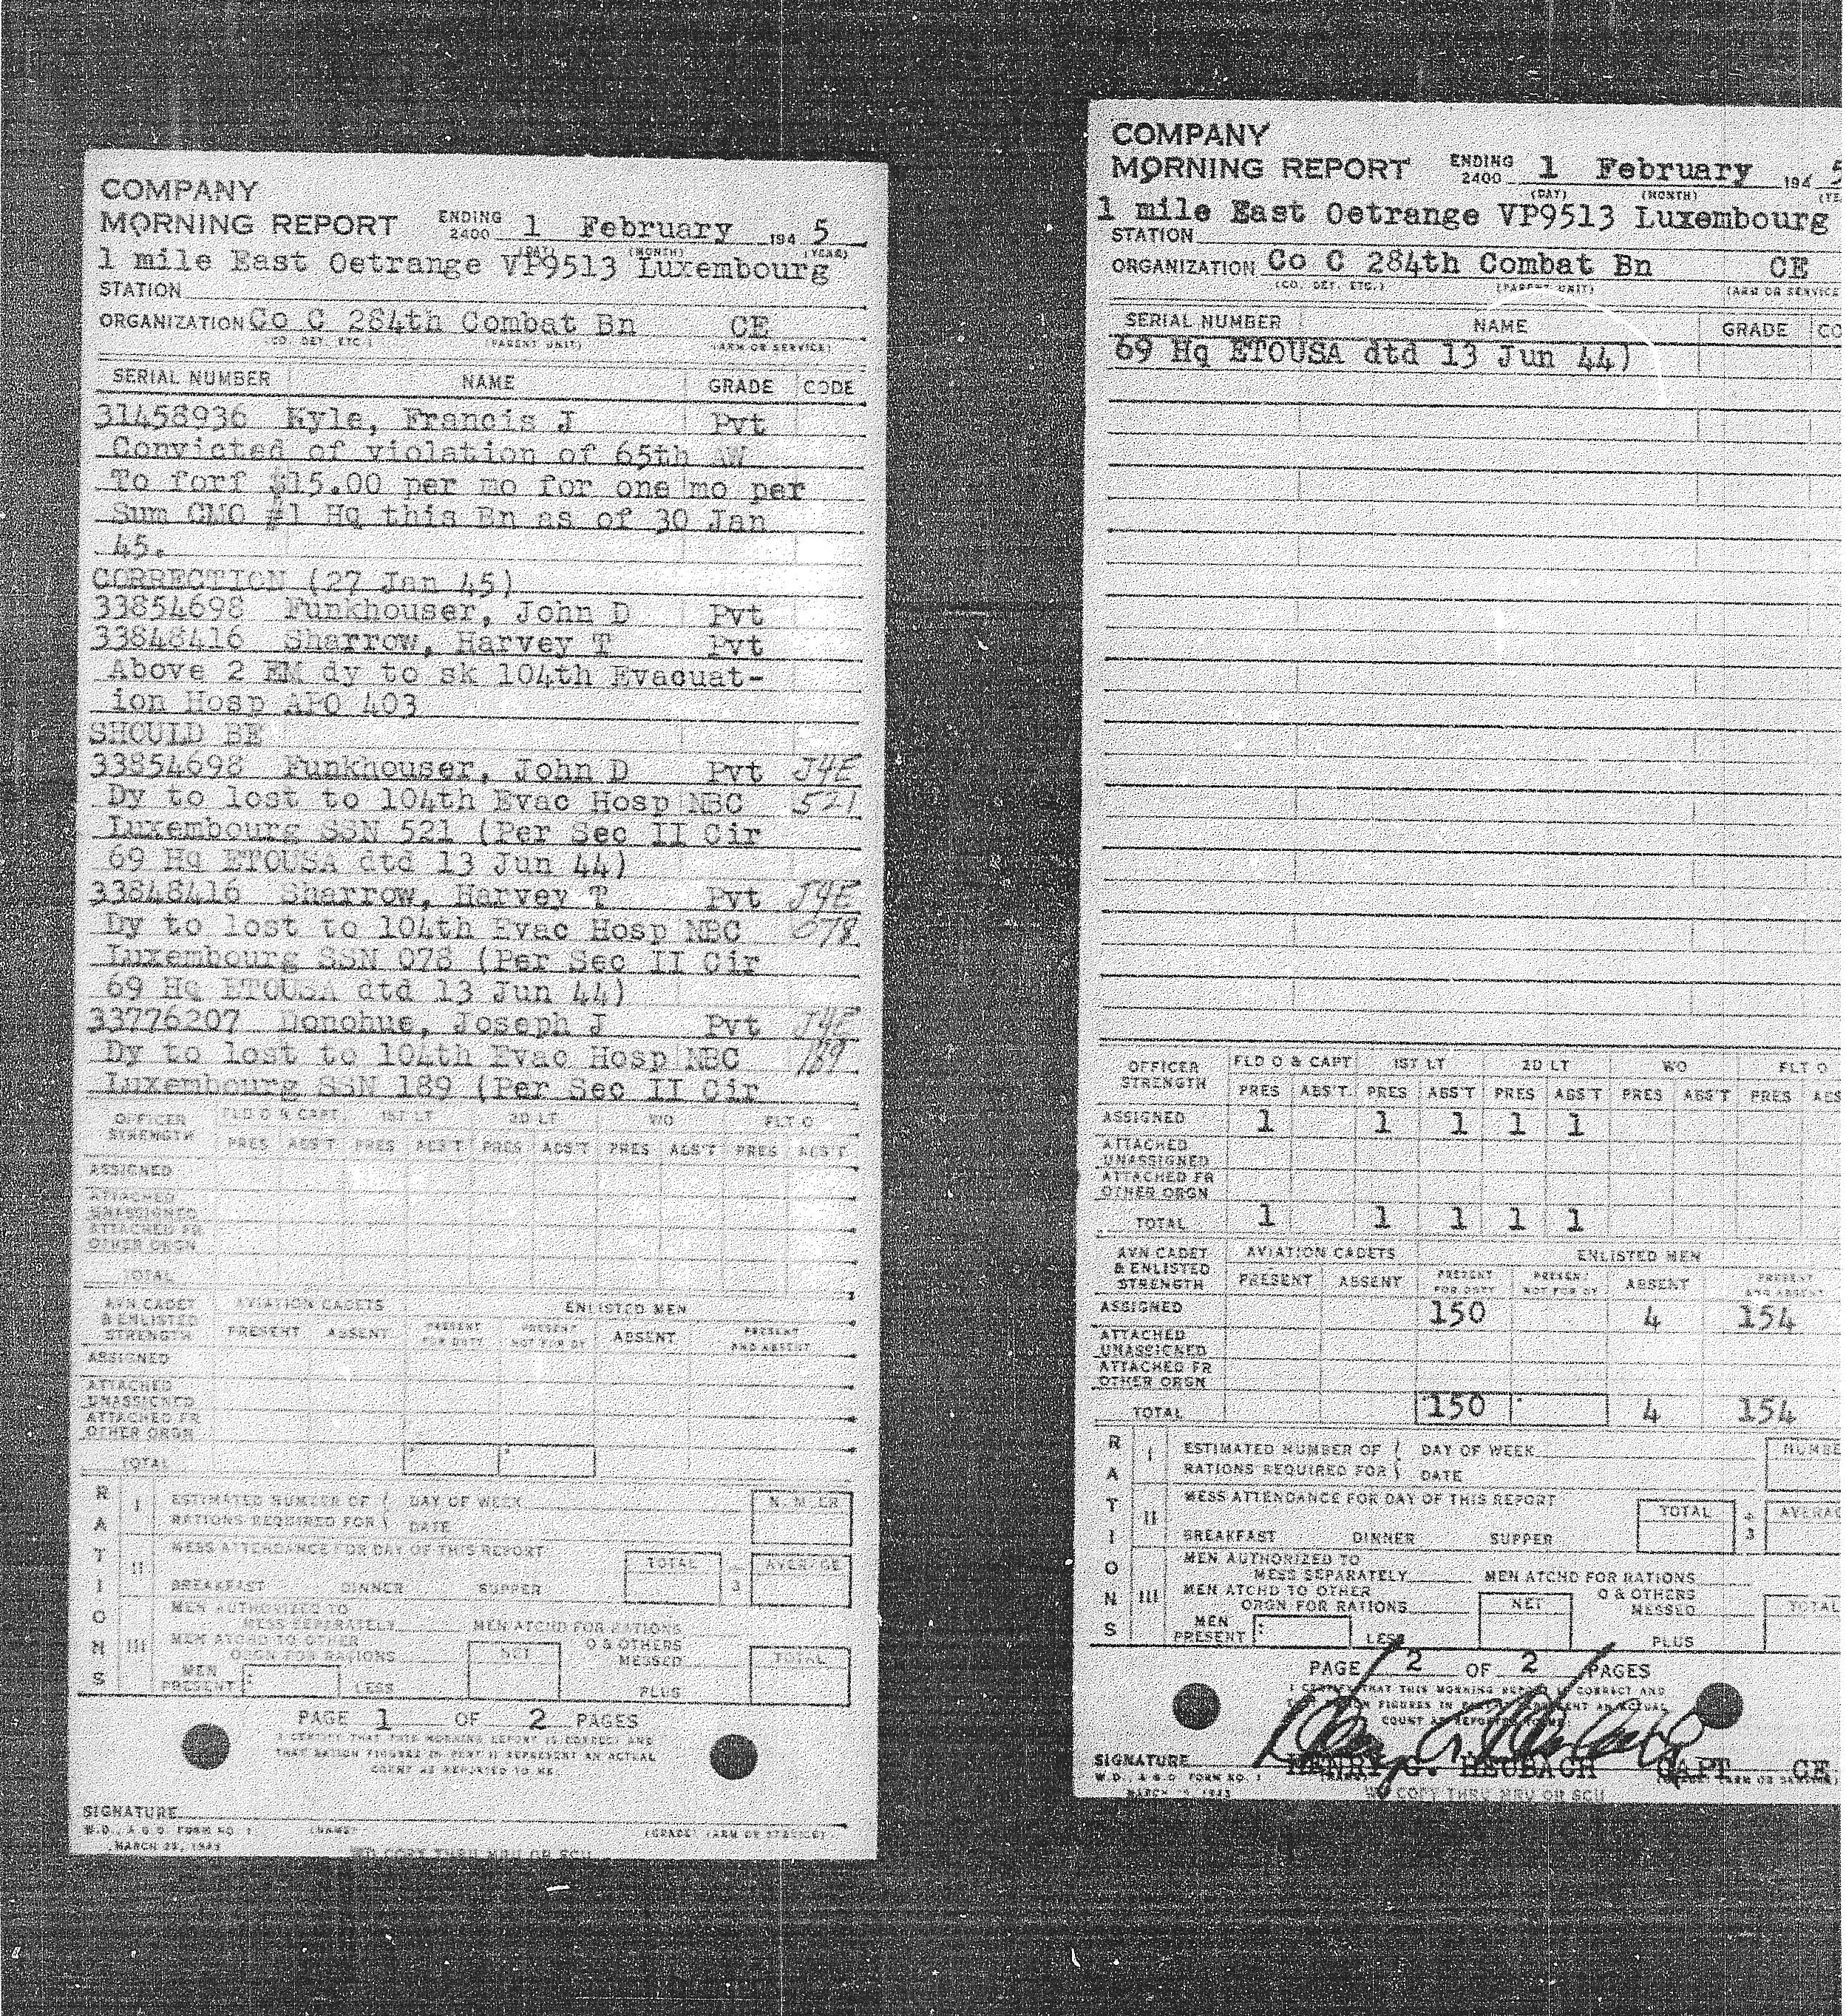 COMPANY
MORNING REPORT ENDING 2400 1 February 194 5
(DAY) (MONTH) (YEAR)
1 mile East Oetrange VP9513 Luxembourg
STATION
ORGANIZATION Co C 284th Combat Bn CE
(CO. DET. ETC.) (PARENT UNIT) (ARM OR SERVICE)
SERIAL NUMBER NAME GRADE CODE
31458936 Kyle, Francis J Pvt
Convicted of violation of 65th AW
To forf $15.00 per mo for one mo per
Sum CMO #1 Hq this Bn as of 30 Jan
45.
CORRECTION (27 Jan 45)
33854698 Funkhouser, John D Pvt
33848416 Sharrow, Harvey T Pvt
Above 2 EM dy to sk 104th Evacuat-
ion Hosp APO 403
SHOULD BE
33854698 Funkhouser, John D Pvt J4E
Dy to lost to 104th Evac Hosp NBC 521
Luxembourg SSN 521 (Per Sec II Cir
69 Hq ETOUSA dtd 13 Jun 44)
33848416 Sharrow, Harvey T Pvt J4E
Dy to lost to 104th Evac Hosp NBC 078
Luxembourg SSN 078 (Per Sec II Cir
69 Hq ETOUSA dtd 13 Jun 44)
33776207 Donohue, Joseph J Pvt J4E
Dy to lost to 104th Evac Hosp NBC 189
Luxembourg SSN 189 (Per Sec II Cir
OFFICER STRENGTH FLD O & CAPT 1ST LT 2D LT WO FLT O
PRES ABS'T PRES ABS'T PRES ABS'T PRES ABS'T PRES ABS'T
ASSIGNED
ATTACHED UNASSIGNED
ATTACHED FR OTHER ORGN
TOTAL
AVN CADET & ENLISTED STRENGTH AVIATION CADETS ENLISTED MEN
PRESENT ABSENT PRESENT FOR DUTY PRESENT NOT FOR DY ABSENT PRESENT AND ABSENT
ASSIGNED
ATTACHED UNASSIGNED
ATTACHED FR OTHER ORGN
TOTAL
RATIONS
I ESTIMATED NUMBER OF RATIONS REQUIRED FOR DAY OF WEEK DATE NUMBER
II MESS ATTENDANCE FOR DAY OF THIS REPORT TOTAL ÷ 3 AVERAGE
BREAKFAST DINNER SUPPER
III MEN AUTHORIZED TO MESS SEPARATELY MEN ATCHD FOR RATIONS
MEN ATCHD TO OTHER ORGN FOR RATIONS NET O & OTHERS MESSED TOTAL
MEN PRESENT LESS PLUS
PAGE 1 OF 2 PAGES
I CERTIFY THAT THIS MORNING REPORT IS CORRECT AND
THAT RATION FIGURES IN PART II REPRESENT AN ACTUAL
COUNT AS REPORTED TO ME.
SIGNATURE
W.D., A.G.O. FORM NO. 1 (NAME) (GRADE) (ARM OR SERVICE)
MARCH 25, 1943
WD COPY THRU MRU OR SCU
COMPANY
MORNING REPORT ENDING 2400 1 February 194 5
(DAY) (MONTH)
1 mile East Oetrange VP9513 Luxembourg
STATION
ORGANIZATION Co C 284th Combat Bn CE
(CO. DET. ETC.) (PARENT UNIT) (ARM OR SERVICE
SERIAL NUMBER NAME GRADE CO
69 Hq ETOUSA dtd 13 Jun 44)
OFFICER STRENGTH FLD O & CAPT 1ST LT 2D LT WO FLT O
PRES ABS'T PRES ABS'T PRES ABS'T PRES ABS'T PRES ABS
ASSIGNED 1 1 1 1 1
ATTACHED UNASSIGNED
ATTACHED FR OTHER ORGN
TOTAL 1 1 1 1 1
AVN CADET & ENLISTED STRENGTH AVIATION CADETS ENLISTED MEN
PRESENT ABSENT PRESENT FOR DUTY PRESENT NOT FOR DY ABSENT PRESENT AND ABSENT
ASSIGNED 150 4 154
ATTACHED UNASSIGNED
ATTACHED FR OTHER ORGN
TOTAL 150 4 154
RATIONS
I ESTIMATED NUMBER OF RATIONS REQUIRED FOR DAY OF WEEK DATE NUMBE
II MESS ATTENDANCE FOR DAY OF THIS REPORT TOTAL ÷ 3 AVERAG
BREAKFAST DINNER SUPPER
III MEN AUTHORIZED TO MESS SEPARATELY MEN ATCHD FOR RATIONS
MEN ATCHD TO OTHER ORGN FOR RATIONS NET O & OTHERS MESSED TOTAL
MEN PRESENT LESS PLUS
PAGE 2 OF 2 PAGES
I CERTIFY THAT THIS MORNING REPORT IS CORRECT AND
THAT RATION FIGURES IN PART II REPRESENT AN ACTUAL
COUNT AS REPORTED TO ME.
SIGNATURE HENRY G. HEUBACH CAPT CE
W.D., A.G.O. FORM NO. 1 (NAME) (GRADE) (ARM OR SERVICE)
MARCH 1943
WD COPY THRU MRU OR SCU